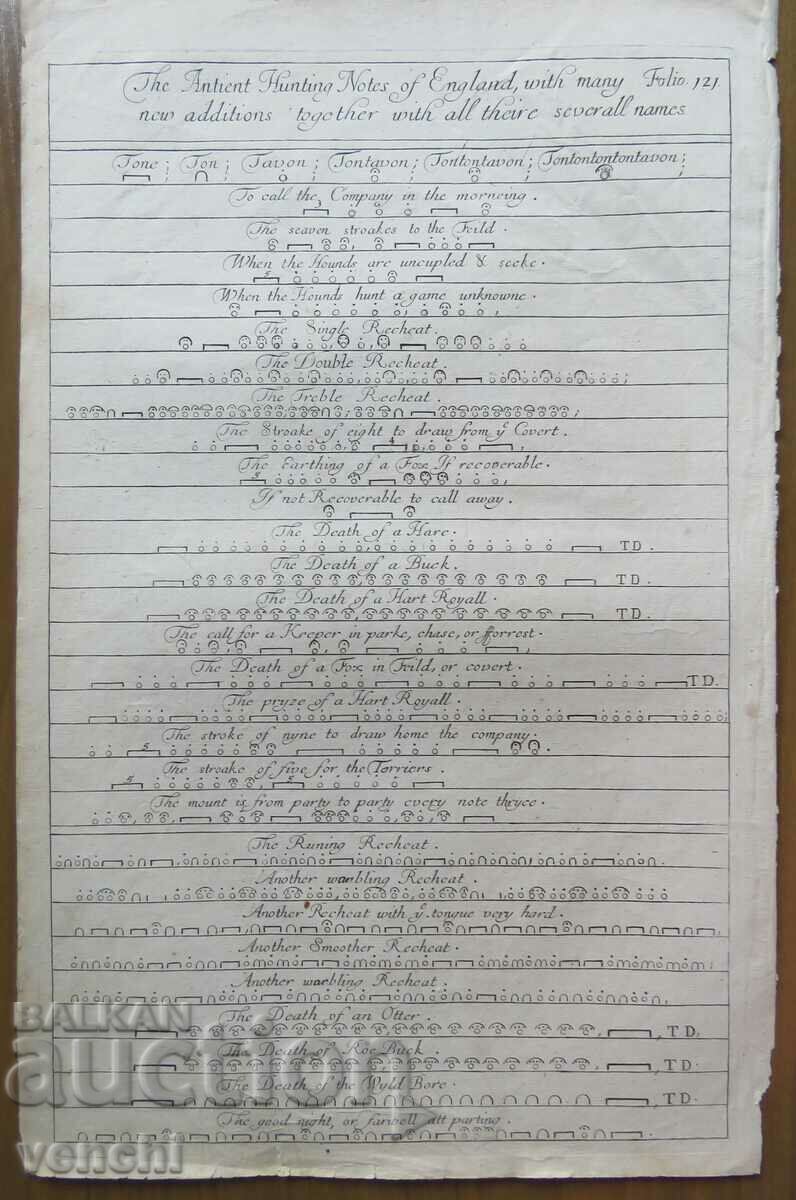 The Antient Hunting Notes of England, with many Folio. 121.
new additions together with all theire severall names
Tone; Ton; Tavon; Tontavon; Tontontavon; Tontontontontavon;
To call the Company in the morneing.
The seaven stroakes to the Feild.
When the Hounds are uncupled & seeke.
5
When the Hounds hunt a game unknowne.
The Single Recheat.
The Double Recheat.
The Treble Recheat.
The Stroake of eight to draw from yᵉ Covert.
4
The Earthing of a Fox If recoverable.
5
If not Recoverable to call away.
The Death of a Hare.
TD.
The Death of a Buck.
TD.
The Death of a Hart Royall.
TD.
The call for a Keeper in parke, chase, or fforrest.
The Death of a Fox in Feild, or covert.
TD.
The pryze of a Hart Royall.
The stroke of nyne to draw home the company.
5
The stroake of five for the Terriers.
5 5
The mount is from party to party every note thryce.
The Runing Recheat.
Another warbling Recheat.
Another Recheat with yᵉ tongue very hard.
Another Smoother Recheat.
Another warbling Recheat.
The Death of an Otter.
TD.
The Death of Roe Buck.
TD.
The Death of the Wyld Bore.
TD.
The good night, or farwell att parting.
BALKAN
auction
venchi